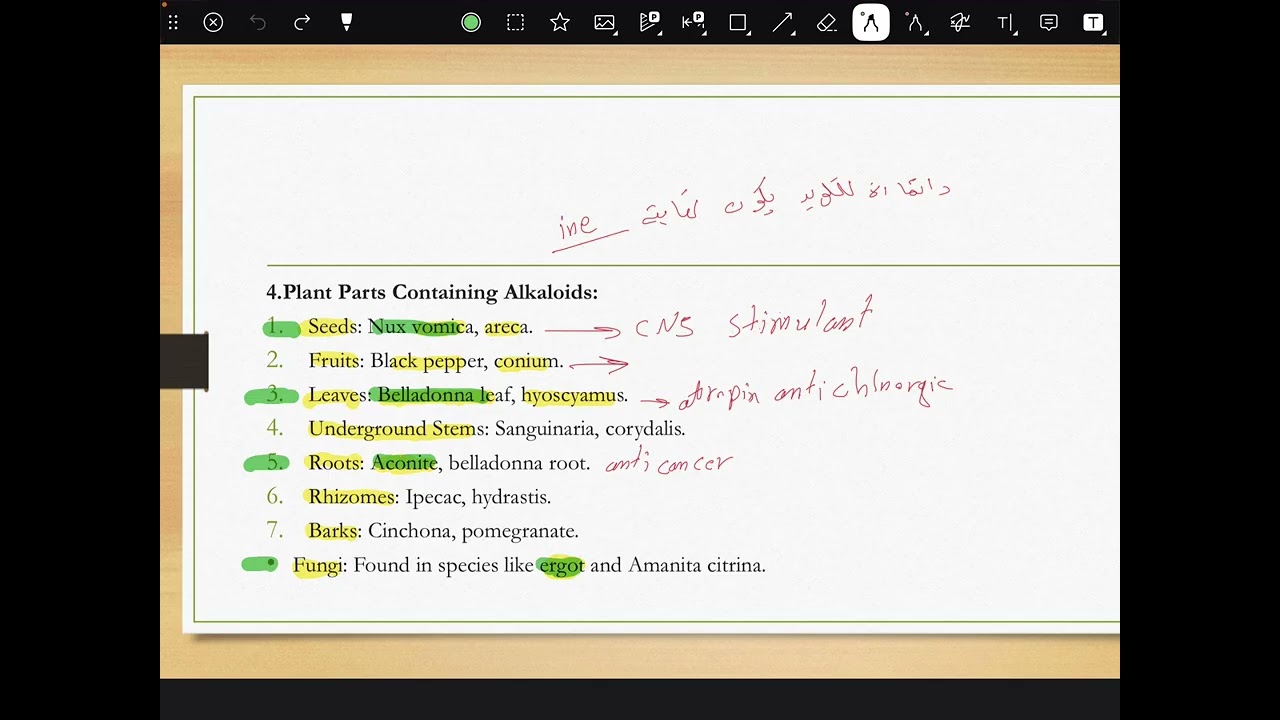 دائما ال للكويد يكون نهايته ine
4.Plant Parts Containing Alkaloids:
1. Seeds: Nux vomica, areca. → CNS stimulant
2. Fruits: Black pepper, conium. →
3. Leaves: Belladonna leaf, hyoscyamus. → atropin antichlnergic
4. Underground Stems: Sanguinaria, corydalis.
5. Roots: Aconite, belladonna root. anti cancer
6. Rhizomes: Ipecac, hydrastis.
7. Barks: Cinchona, pomegranate.
• Fungi: Found in species like ergot and Amanita citrina.